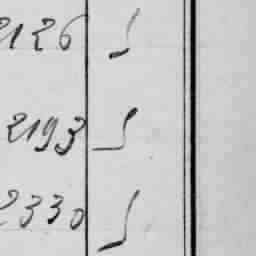 2126
2193
2330